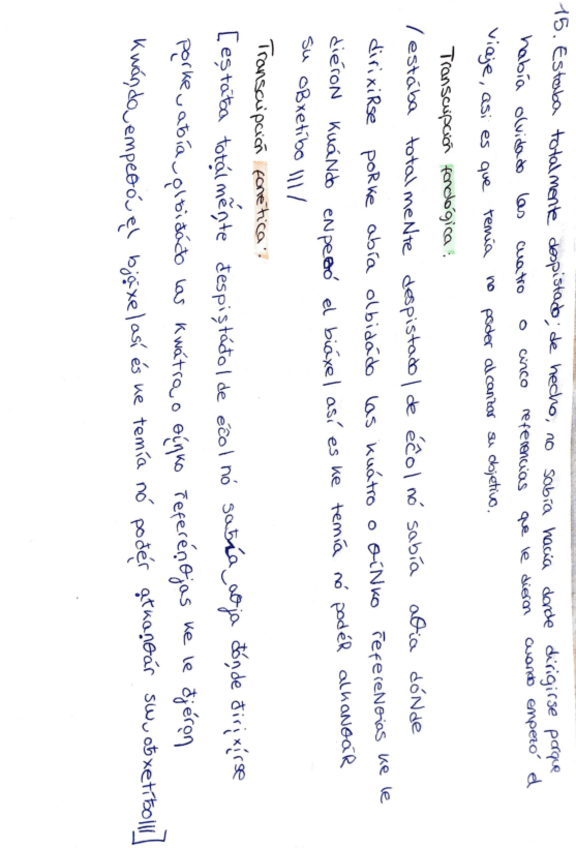 15. Estaba totalmente despistado; de hecho, no sabía hacia donde dirigirse porque
había olvidado las cuatro o cinco referencias que le dieron cuando empezó el
viaje, así es que temía no poder alcanzar su objetivo.
Transcripción fonológica:
/estába totalmeNte despistado| de éĉo| nó sabía aθia dóNde
dirixiRse poRke abía olbidádo las kuátro o θíNko r̄efereNθias ke le
diéroN kuáNdo eNpeθó el biáxe| así es ke temía nó podéR alkaNθáR
su oBxetíbo|||/
Transcripción fonética:
[estáƀa totálmẽn̪te đespistáđo| đe éĉo| nó saƀía‿aθja đón̪de điri̯xírse
porke‿aƀía‿olƀiđáđo las kwátro‿o θíŋko r̄eferén̟θjas ke le đjéron
kwán̪do‿empeθó‿el bjáxe| así és ke temía nó pođér alkan̟θár su‿oƀxetíƀo|||]